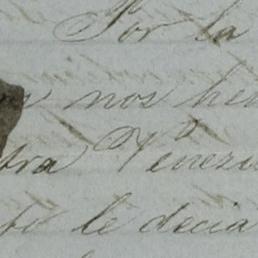 Por la
nos he
tra Venezu
to le decia